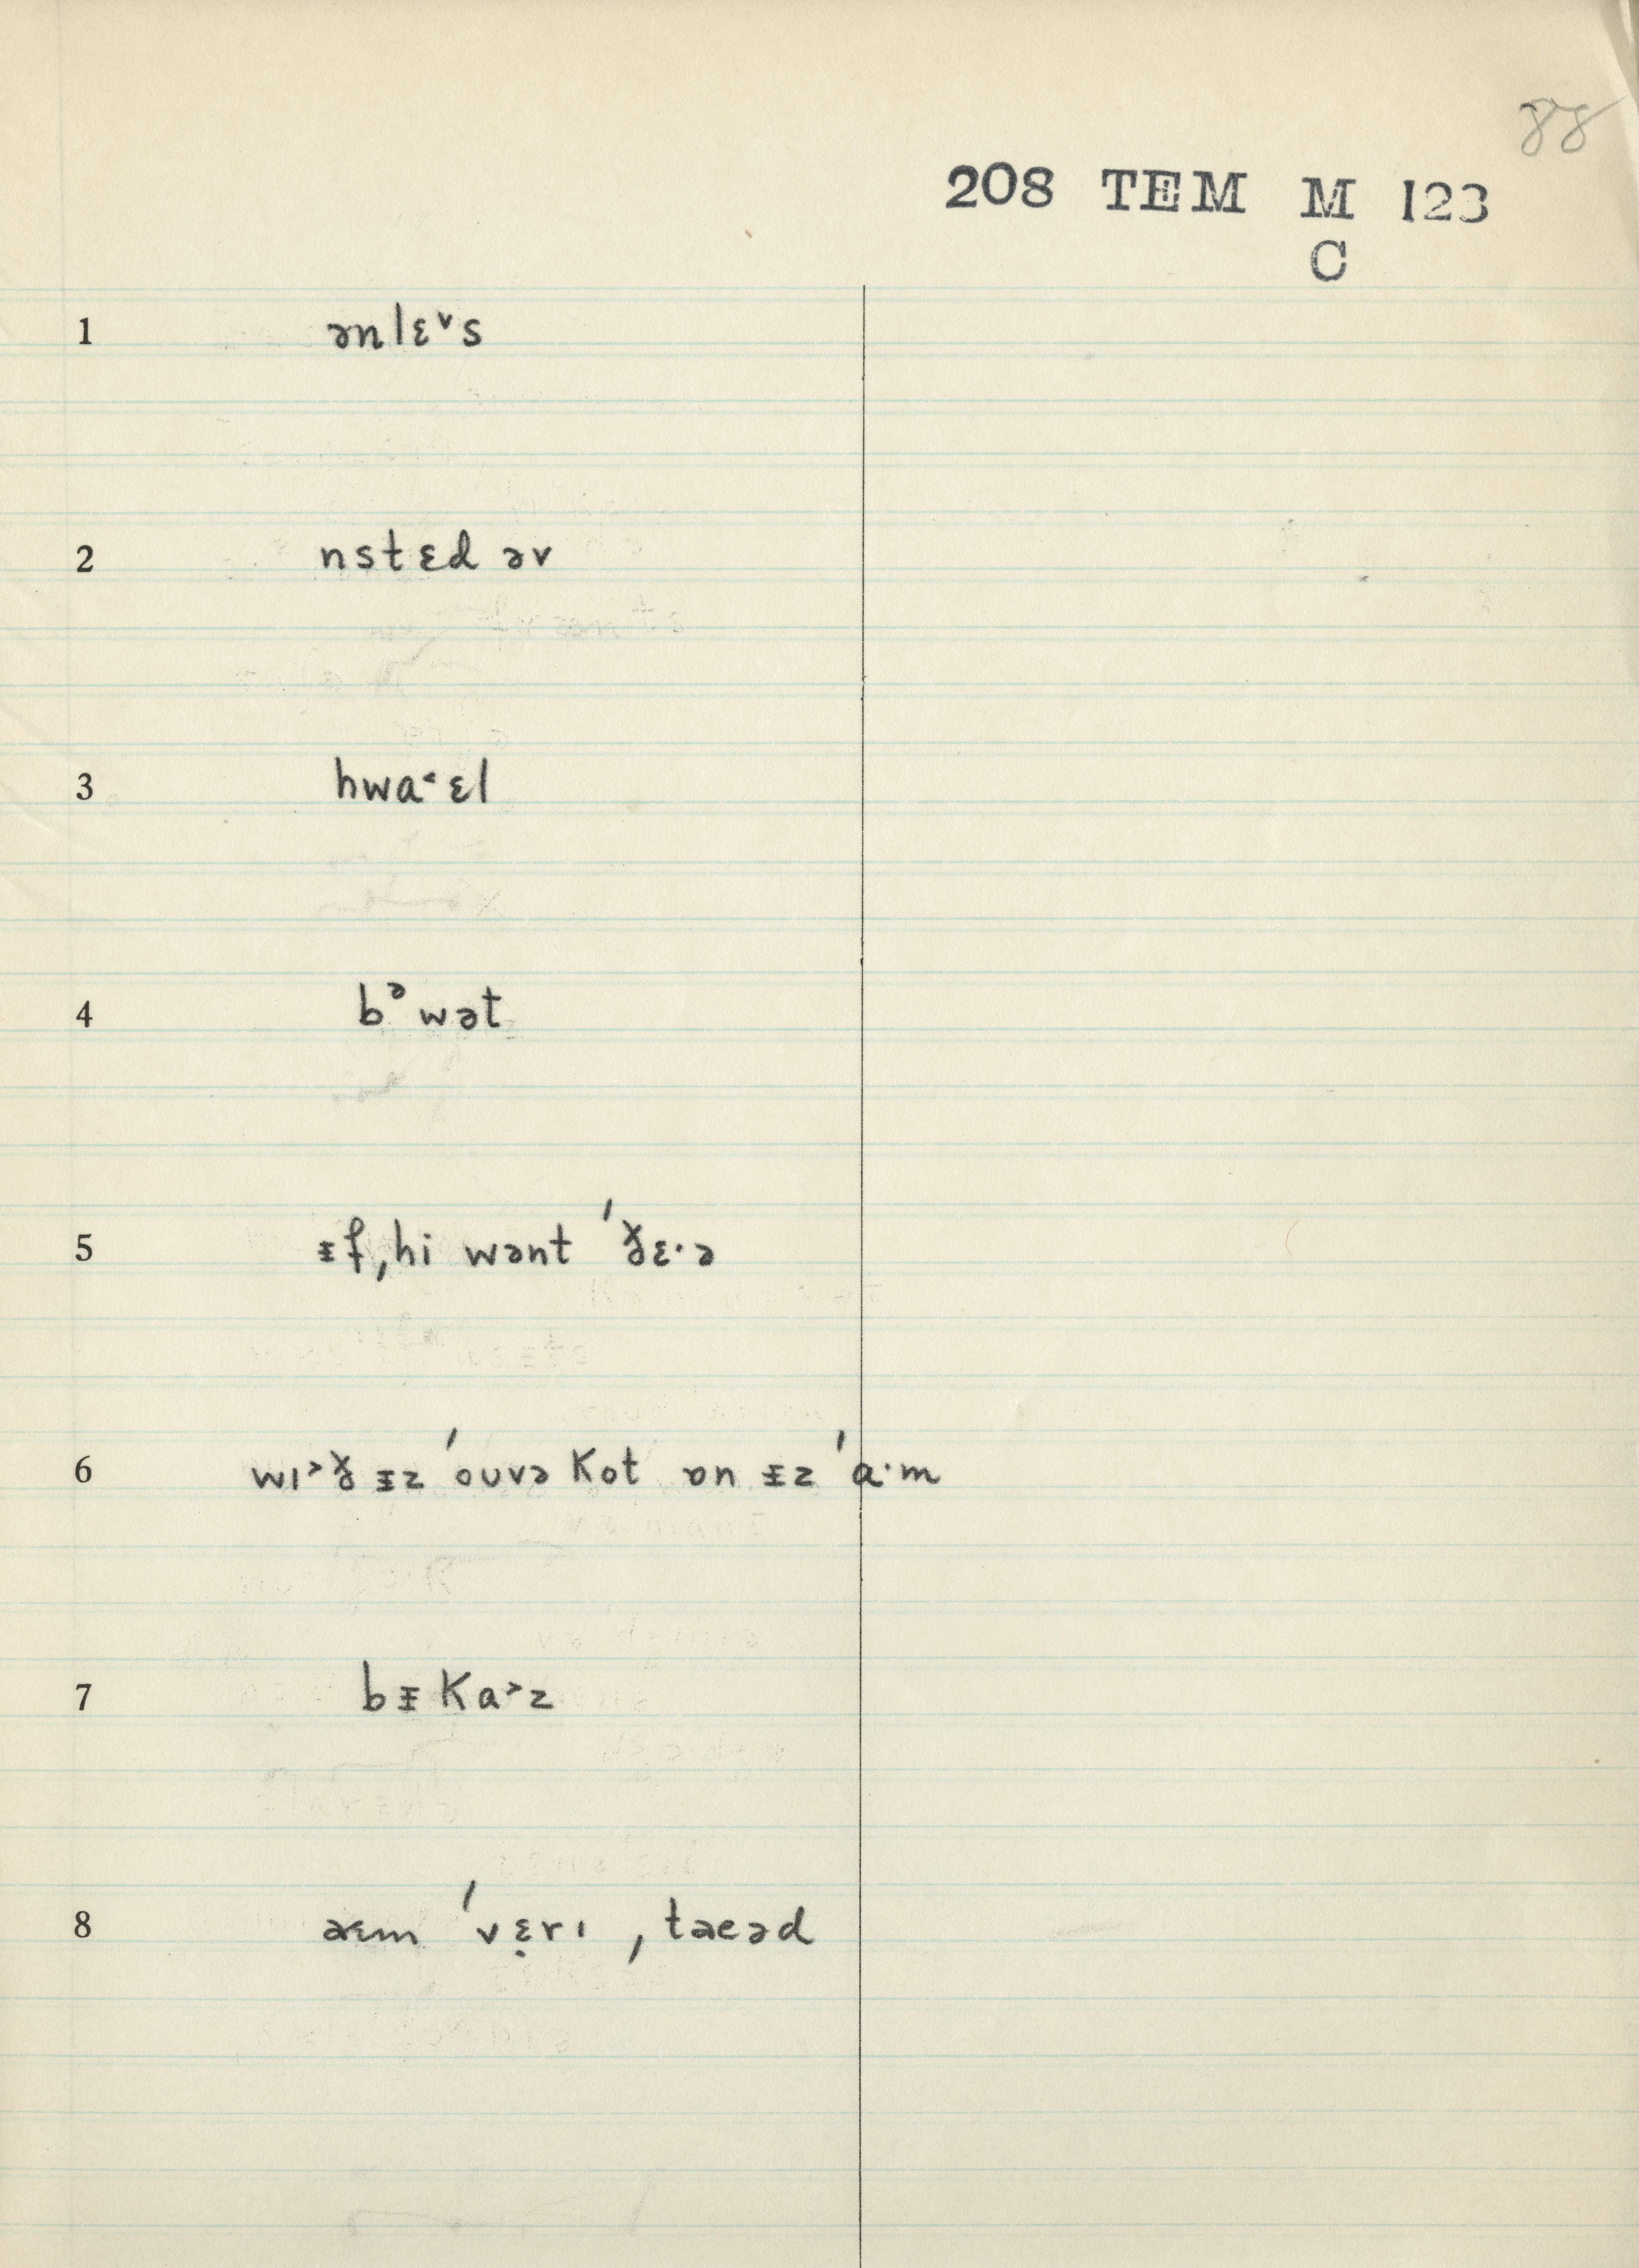 88
208 TEM M 123
C
1 ənlɛ˅s
2 nstɛd əv
3 hwa˂ɛl
4 bᵊwət
5 ᵻf ˌhi wənt ˈð̶ɛ·ə
6 wɪ˃ð ᵻz ˈouvə kot ɒn ᵻz ˈa·m
7 bᵻka˃z
8 aɪm ˈvɛ̣rɪ ˌtaeəd